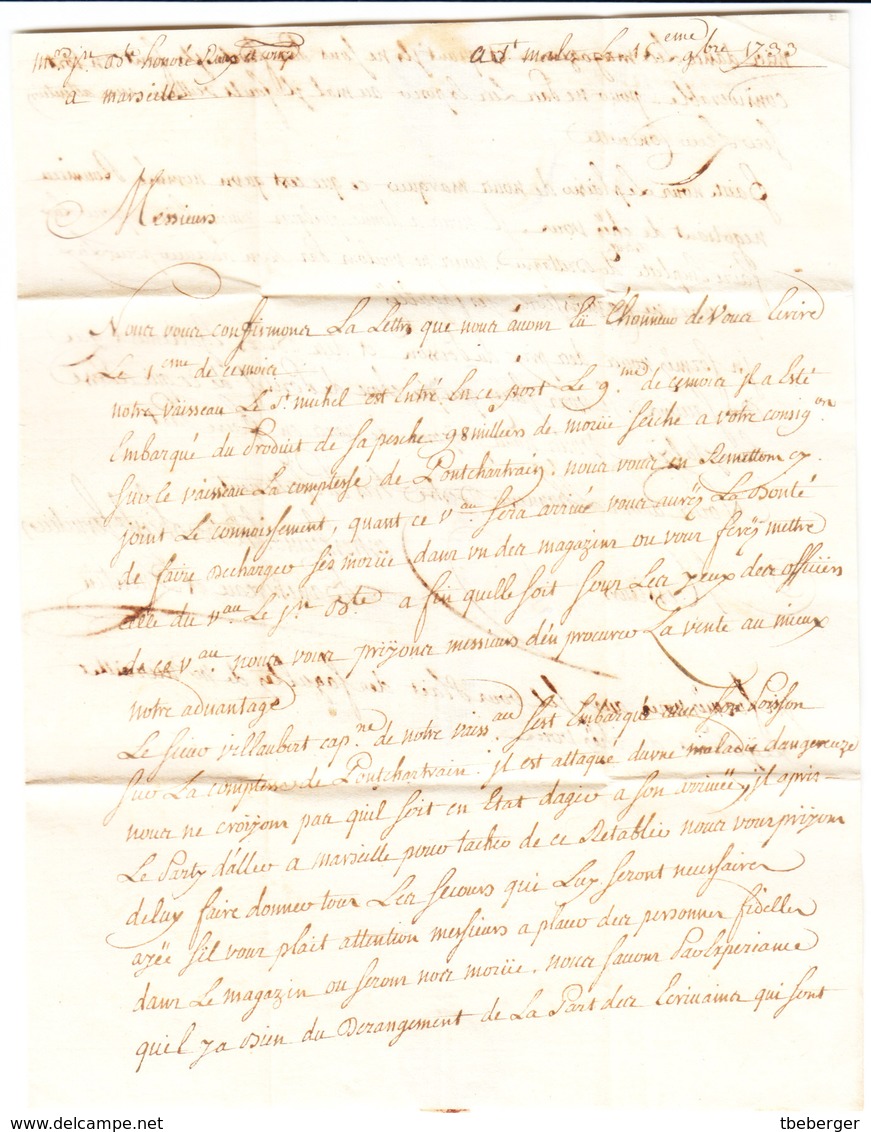 Mrs Jn Bte honoré Roux
a St malo le 15eme 9bre 1733
a marseille
Messieurs
Nous vous confirmons La Lettre que nous avons Eü L'honneur de Vous Ecrire
Le 1eme de cemois
notre vaisseau Le St michel est Entré En ce port Le 9me de cemois il a Esté
Embarqué du Produit de sa pesche 98 milliers de moriie seiche a votre consigon
sur le vaisseau La comptesse de Pontchartrain, nous vous en Remettons cy
joint Le connoissement, quant ce vau sera arrivé vous aurez La Bonté
de faire Decharger ses moriie dans un des magazins ou vous ferez mettre
celle du vau Le Jn Bte a fin quelle soit sous Les yeux des officiers
de ce vau nous vous priyons messieurs d'en procurer La vente au mieux
notre advantage
Le sieur villaubert capne de notre vaissau sest Embarqué son Poisson
sur La comptesse de Pontchartrain, il est attaqué dune maladie dangereuze
nous ne croiyons pas quil soit en Etat dagir a son arriveë, il a pris
Le Party d'aller a Marseille pour tacher de ce Retablir nous vous priyons
deluy faire donner tous Les secours qui Luy seront necessaires
ayéë sil vous plait attention messieurs a placer des personnes fidelles
dans Le magazin ou serons nos moriie, nous savons Par Experiance
quil y a Bien du Derangement de La Part des Ecrivains qui sont
tbeberger